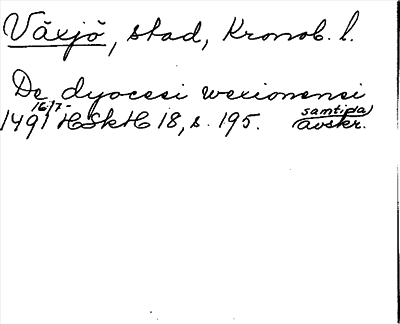 Växjö, stad, Kronob. l.
De dyocesi wexionensi
16/7 - samtida
1491 HSkH 18, s. 195. avskr.